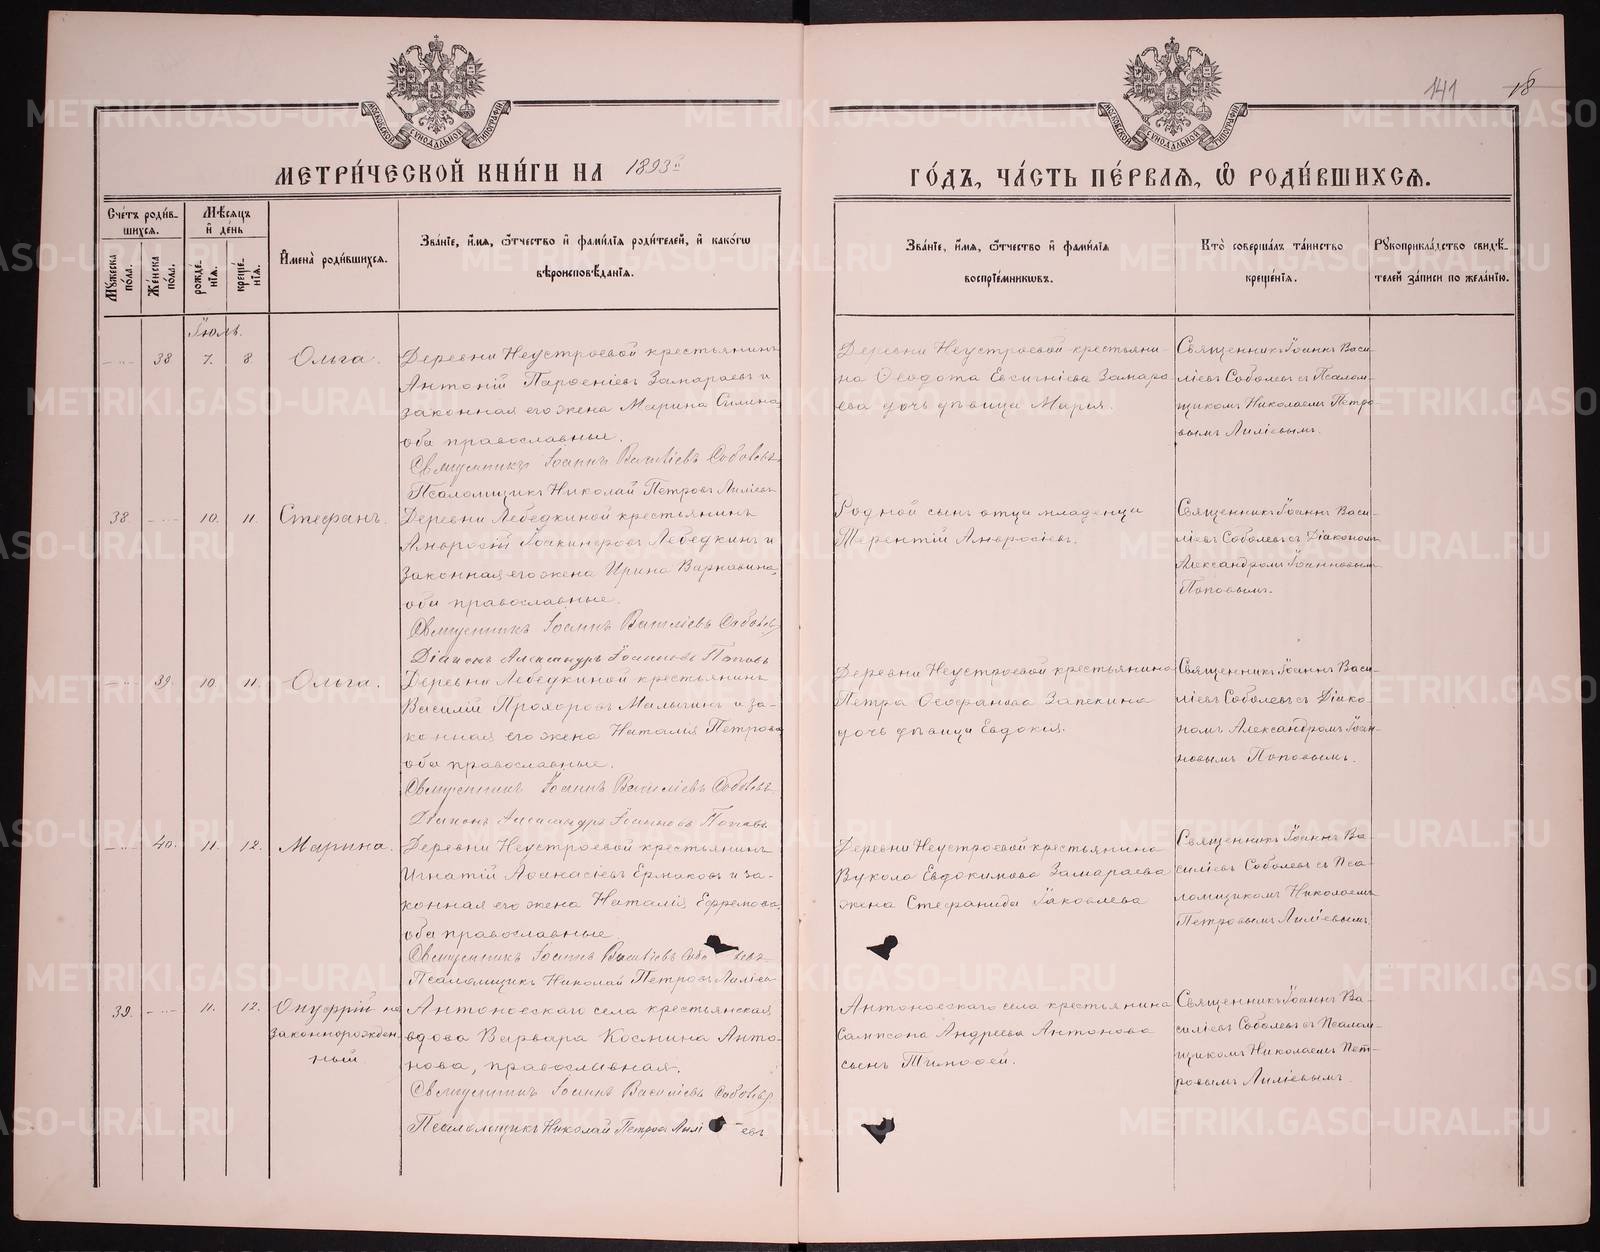 141 18
МОСКОВСКОЙ СУНОДАЛЬНОЙ ТИПОГРАФІИ
МОСКОВСКОЙ СУНОДАЛЬНОЙ ТИПОГРАФІИ
МЕТРИ́ЧЕСКОЙ КНИ́ГИ НА 1893й
ГО́ДЪ, ЧА́СТЬ ПЕ́РВАЯ, Ѡ РОДИ́ВШИХСЯ.
Сче́тъ роди́в-
шихся.
Мѣ́сяцъ
и́ де́нь
Му́жеска
по́ла.
Же́нска
по́ла.
рожде́-
нія.
креще́-
нія.
И҆мена̀ роди́вшихся.
Зва́ніе, и҆́мя, ѻ҆́тчество и҆ фами́лія роди́телей, и҆ како́гѡ
вѣроисповѣ́данія.
Зва́ніе, и҆́мя, ѻ҆́тчество и҆ фами́лія
воспріе́мниковъ.
Кто̀ соверша́лъ та́инство
креще́нія.
Рꙋкоприкла́дство свидѣ́-
телей за́писи по жела́нію.
Іюль.
38 7. 8 Ольга.
Деревни Неустроевой крестьянинъ
Антоній Парѳеніевъ Замараевъ и
законная его жена Марина Силина,
оба православные.
Священникъ Іоаннъ Василіевъ Соболевъ
Псаломщикъ Николай Петровъ Лиліевъ
Деревни Неустроевой крестьяни-
на Ѳеодота Евсигніева Замара
ева дочь дѣвица Марія.
Священникъ Іоаннъ Васи-
ліевъ Соболевъ съ Псалом-
щикомъ Николаемъ Петро-
вымъ Лиліевымъ.
38 10. 11. Стефанъ.
Деревни Лебедкиной крестьянинъ
Амвросій Іоакинфовъ Лебедкинъ и
законная его жена Ирина Варнавина,
оба православные.
Священникъ Іоаннъ Василіевъ Соболевъ
Діаконъ Александръ Іоанновъ Поповъ
Родной сынъ отца младенца
Терентій Амвросіевъ.
Священникъ Іоаннъ Васи-
ліевъ Соболевъ съ Діакономъ
Александромъ Іоанновымъ
Поповымъ.
39 10. 11. Ольга.
Деревни Лебедкиной крестьянинъ
Василій Прохоровъ Малыгинъ и за-
конная его жена Наталія Петрова
оба православные.
Священникъ Іоаннъ Василіевъ Соболевъ
Діаконъ Александръ Іоанновъ Поповъ
Деревни Неустроевой крестьянина
Петра Ѳеофанова Запекина
дочь дѣвица Евдокія.
Священникъ Іоаннъ Васи-
ліевъ Соболевъ съ Діако-
номъ Александромъ Іоан-
новымъ Поповымъ.
40. 11. 12. Марина.
Деревни Неустроевой крестьянинъ
Игнатій Аѳанасіевъ Ермаковъ и за-
конная его жена Наталія Ефремова,
оба православные.
Священникъ Іоаннъ Василіевъ Собо левъ
Псаломщикъ Николай Петровъ Лиліевъ
Деревни Неустроевой крестьянина
Вукола Евдокимова Замараева
жена Стефанида Іаковлева
Священникъ Іоаннъ Ва-
силіевъ Соболевъ съ Пса-
ломщикомъ Николаемъ
Петровымъ Лиліевымъ
39. 11. 12. Онуфрій не
законнорожден
ный
Антоновскаго села крестьянская
вдова Варвара Космина Анто-
нова, православная.
Священникъ Іоаннъ Василіевъ Соболевъ
Псаломщикъ Николай Петровъ Лилі евъ
Антоновскаго села крестьянина
Сампсона Андреева Антонова
сынъ Тимоѳей.
Священникъ Іоаннъ Ва-
силіевъ Соболевъ съ Псалом-
щикомъ Николаемъ Пет-
ровымъ Лиліевымъ.
METRIKI.GASO-URAL.RU